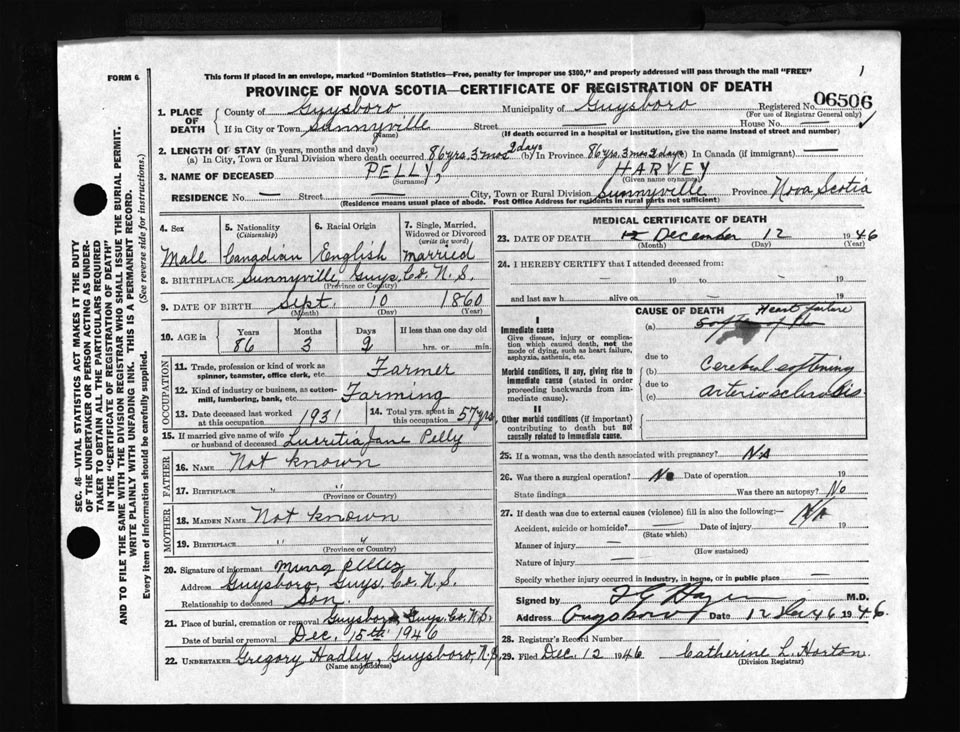 FORM 6
This form if placed in an envelope, marked "Dominion Statistics—Free, penalty for improper use $300," and properly addressed will pass through the mail "FREE"
1
PROVINCE OF NOVA SCOTIA—CERTIFICATE OF REGISTRATION OF DEATH
1. PLACE OF DEATH County of Guysboro Municipality of Guysboro Registered No. 06506
(For use of Registrar General only)
If in City or Town Sunnyville Street — House No. —
(Name) (If death occurred in a hospital or institution, give the name instead of street and number)
2. LENGTH OF STAY (in years, months and days)
(a) In City, Town or Rural Division where death occurred 86 yrs. 3 mos 2 days (b) In Province 86 yrs. 3 mos 2 days (c) In Canada (if immigrant) —
3. NAME OF DECEASED PELLY, HARVEY
(Surname) (Given name or names)
RESIDENCE No. — Street — City, Town or Rural Division Sunnyville Province Nova Scotia
(Residence means usual place of abode. Post Office Address for residents in rural parts not sufficient)
4. Sex
Male
5. Nationality
(Citizenship)
Canadian
6. Racial Origin
English
7. Single, Married, Widowed or Divorced
(write the word)
married
8. BIRTHPLACE Sunnyville Guys. Co. N. S.
(Province or Country)
9. DATE OF BIRTH Sept. 10 1860
(Month) (Day) (Year)
10. AGE in Years Months Days If less than one day old
86 3 2 hrs. or min.
OCCUPATION
11. Trade, profession or kind of work as spinner, teamster, office clerk, etc. Farmer
12. Kind of industry or business, as cotton-mill, lumbering, bank, etc. Farming
13. Date deceased last worked at this occupation 1931
14. Total yrs. spent in this occupation 57 yrs.
15. If married give name of wife or husband of deceased Lucretia Jane Pelly
FATHER
16. NAME Not known
17. BIRTHPLACE " "
(Province or Country)
MOTHER
18. MAIDEN NAME Not known
19. BIRTHPLACE " "
(Province or Country)
20. Signature of informant
Address Guysboro, Guys. Co. N. S.
Relationship to deceased Son.
21. Place of burial, cremation or removal Guysboro Guys. Co. N.S.
Date of burial or removal Dec. 15th 1946
22. UNDERTAKER Gregory Hadley, Guysboro, N.S.
(Name and address)
MEDICAL CERTIFICATE OF DEATH
23. DATE OF DEATH December 12 1946
(Month) (Day) (Year)
24. I HEREBY CERTIFY that I attended deceased from:
— 19 to — 19
and last saw h alive on — 19
CAUSE OF DEATH
I
Immediate cause
Give disease, injury or complication which caused death, not the mode of dying, such as heart failure, asphyxia, asthenia, etc.
(a) Heart failure
due to
Morbid conditions, if any, giving rise to immediate cause (stated in order proceeding backwards from immediate cause).
(b) Cerebral softening
due to
(c) Arteriosclerosis.
II
Other morbid conditions (if important) contributing to death but not causally related to immediate cause.
25. If a woman, was the death associated with pregnancy?
26. Was there a surgical operation? No Date of operation 19
State findings Was there an autopsy? No
27. If death was due to external causes (violence) fill in also the following:— N/A
Accident, suicide or homicide? — Date of injury 19
(State which)
Manner of injury —
(How sustained)
Nature of injury —
Specify whether injury occurred in industry, in home, or in public place —
Signed by M.D.
Address Guysboro Date 12 Dec 46 1946
28. Registrar's Record Number
29. Filed Dec. 12 1946 Catherine L. Horton
(Division Registrar)
SEC. 46—VITAL STATISTICS ACT MAKES IT THE DUTY
OF THE UNDERTAKER OR PERSON ACTING AS UNDERTAKER TO OBTAIN ALL THE PARTICULARS REQUIRED
IN THE "CERTIFICATE OF REGISTRATION OF DEATH"
AND TO FILE THE SAME WITH THE DIVISION REGISTRAR WHO SHALL ISSUE THE BURIAL PERMIT.
WRITE PLAINLY WITH UNFADING INK. THIS IS A PERMANENT RECORD.
Every item of information should be carefully supplied. (See reverse side for instructions.)